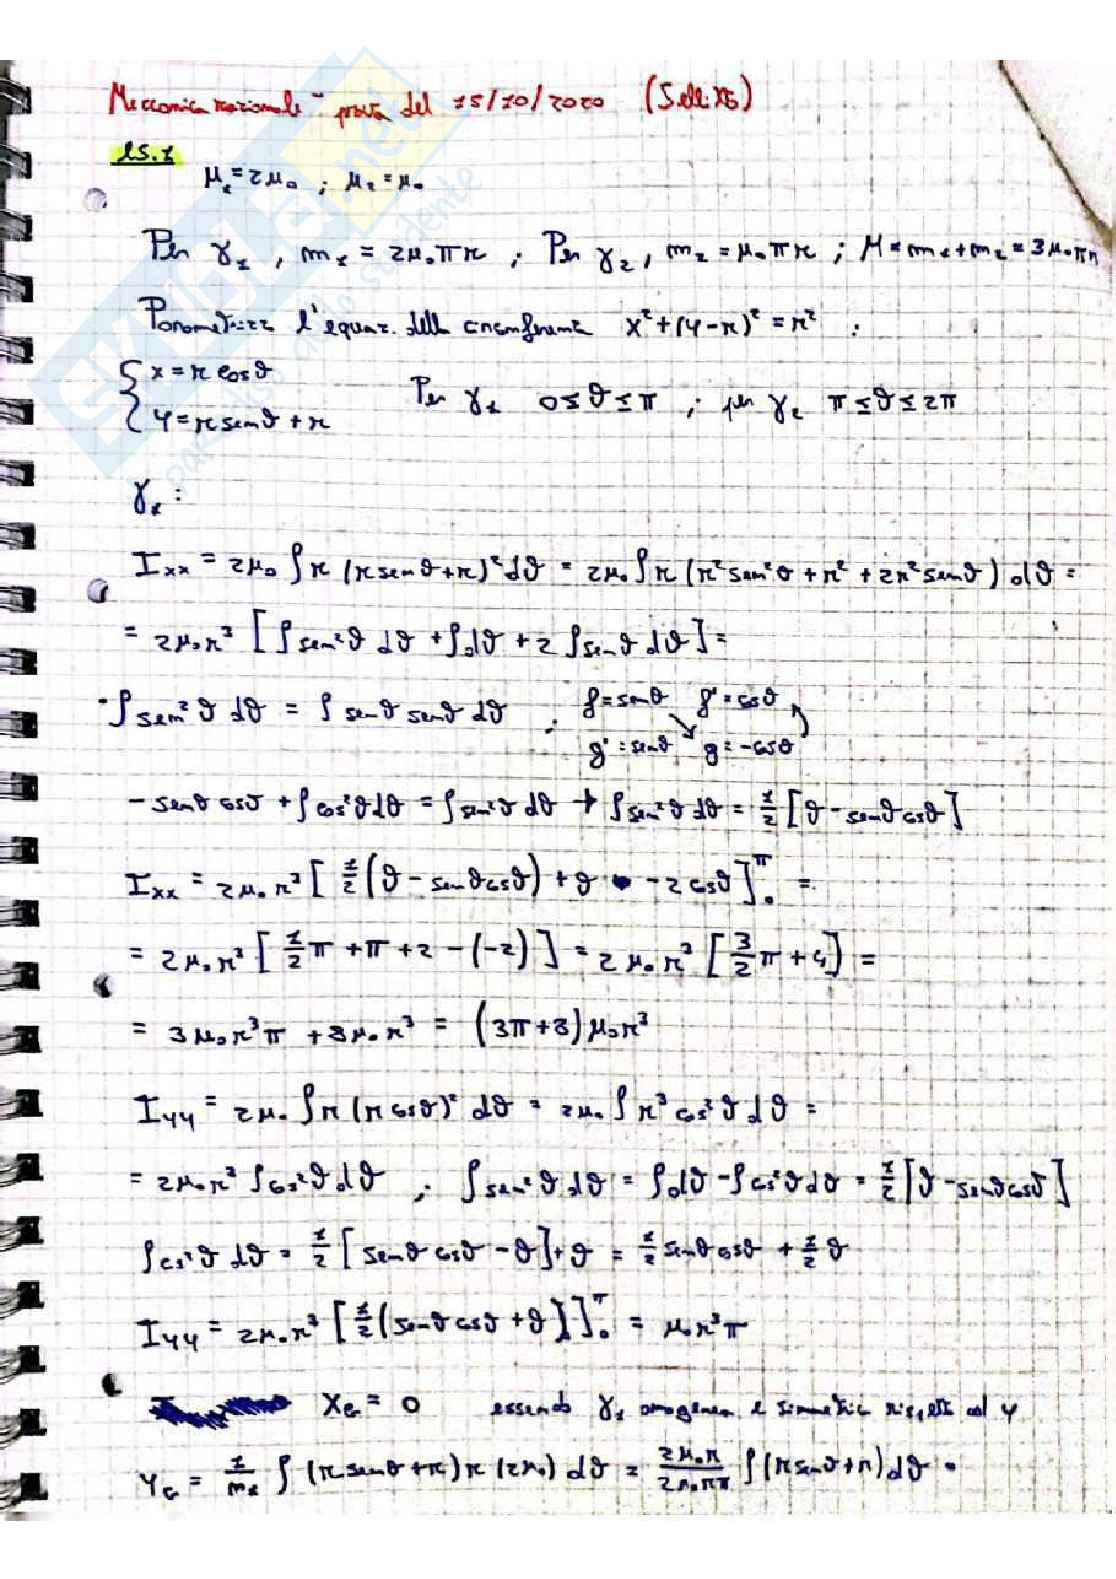 Meccanica razionale - prova del 15/10/2020 (Serie XB)
ES. 1
μ₁ = 2μ₀ ; μ₂ = μ₀
Per γ₁, m₁ = 2μ₀πr ; Per γ₂, m₂ = μ₀πr ; M = m₁ + m₂ = 3μ₀πr
l'equaz. della circonferenza x² + (y-r)² = r² :
{ x = r cosϑ
{ y = r senϑ + r
Per γ₁ 0 ≤ ϑ ≤ π ; per γ₂ π ≤ ϑ ≤ 2π
γ₁ :
Ixx = 2μ₀ ∫ r (r senϑ + r)² dϑ = 2μ₀ ∫ r (r² sen²ϑ + r² + 2r² senϑ) dϑ =
= 2μ₀r³ [ ∫ sen²ϑ dϑ + ∫ dϑ + 2 ∫ senϑ dϑ ] =
- ∫ sen²ϑ dϑ = ∫ senϑ senϑ dϑ . f = senϑ f' = cosϑ
g' = senϑ g = -cosϑ
- senϑ cosϑ + ∫ cos²ϑ dϑ = ∫ sen²ϑ dϑ → ∫ sen²ϑ dϑ = 1/2 [ϑ - senϑ cosϑ]
Ixx = 2μ₀r³ [ 1/2 (ϑ - senϑ cosϑ) + ϑ - 2 cosϑ ]₀^π =
= 2μ₀r³ [ 1/2 π + π + 2 - (-2) ] = 2μ₀r³ [ 3/2 π + 4 ] =
= 3μ₀r³π + 8μ₀r³ = (3π + 8) μ₀r³
Iyy = 2μ₀ ∫ r (r cosϑ)² dϑ = 2μ₀ ∫ r³ cos²ϑ dϑ =
= 2μ₀r³ ∫ cos²ϑ dϑ ; ∫ sen²ϑ dϑ = ∫ dϑ - ∫ cos²ϑ dϑ = 1/2 [ϑ - senϑ cosϑ]
∫ cos²ϑ dϑ = 1/2 [senϑ cosϑ - ϑ] + ϑ = 1/2 senϑ cosϑ + 1/2 ϑ
Iyy = 2μ₀r³ [ 1/2 (senϑ cosϑ + ϑ) ]₀^π = μ₀r³π
x_G = 0 essendo γ₁ omogenea e simmetrica rispetto ad y
y_G = 1/m₁ ∫ (r senϑ + r) r (2μ₀) dϑ = 2μ₀r/2μ₀rπ ∫ (r senϑ + r) dϑ =
SKUOLA.net